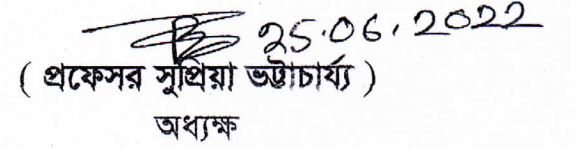 25.06.2022
( প্রফেসর সুপ্রিয়া ভট্টাচার্য্য )
অধ্যক্ষ